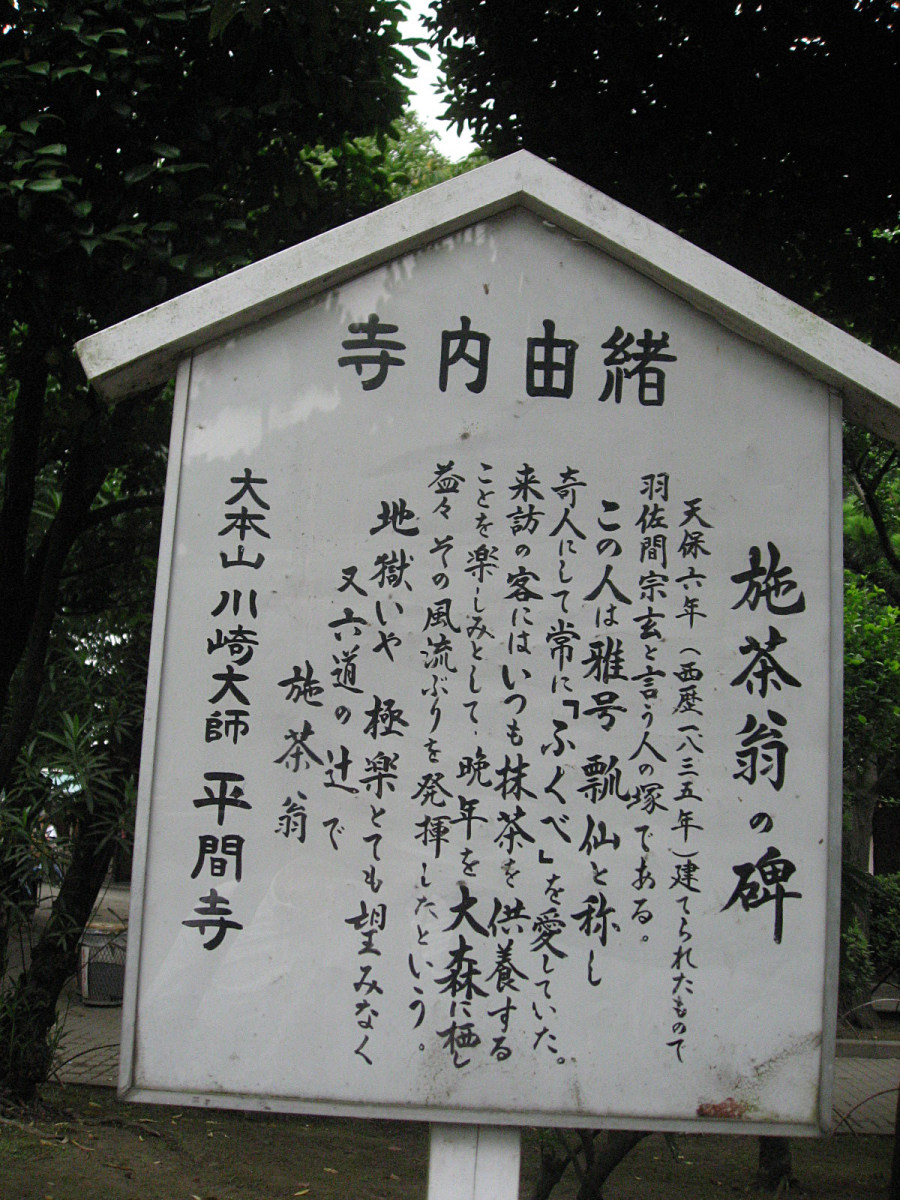 緒由内寺
施茶翁の碑
天保六年(西歴一八三五年)建てられたもので
羽佐間宗玄と言う人の塚である。
この人は雅号瓢仙と称し
奇人にして常に「ふくべ」を愛していた。
来訪の客にはいつも抹茶を供養する
ことを楽しみとして、晩年を大森に栖し
益々その風流ぶりを発揮したという。
地獄いや 極楽とても望みなく
又六道の辻で
施茶翁
大本山川崎大師平間寺